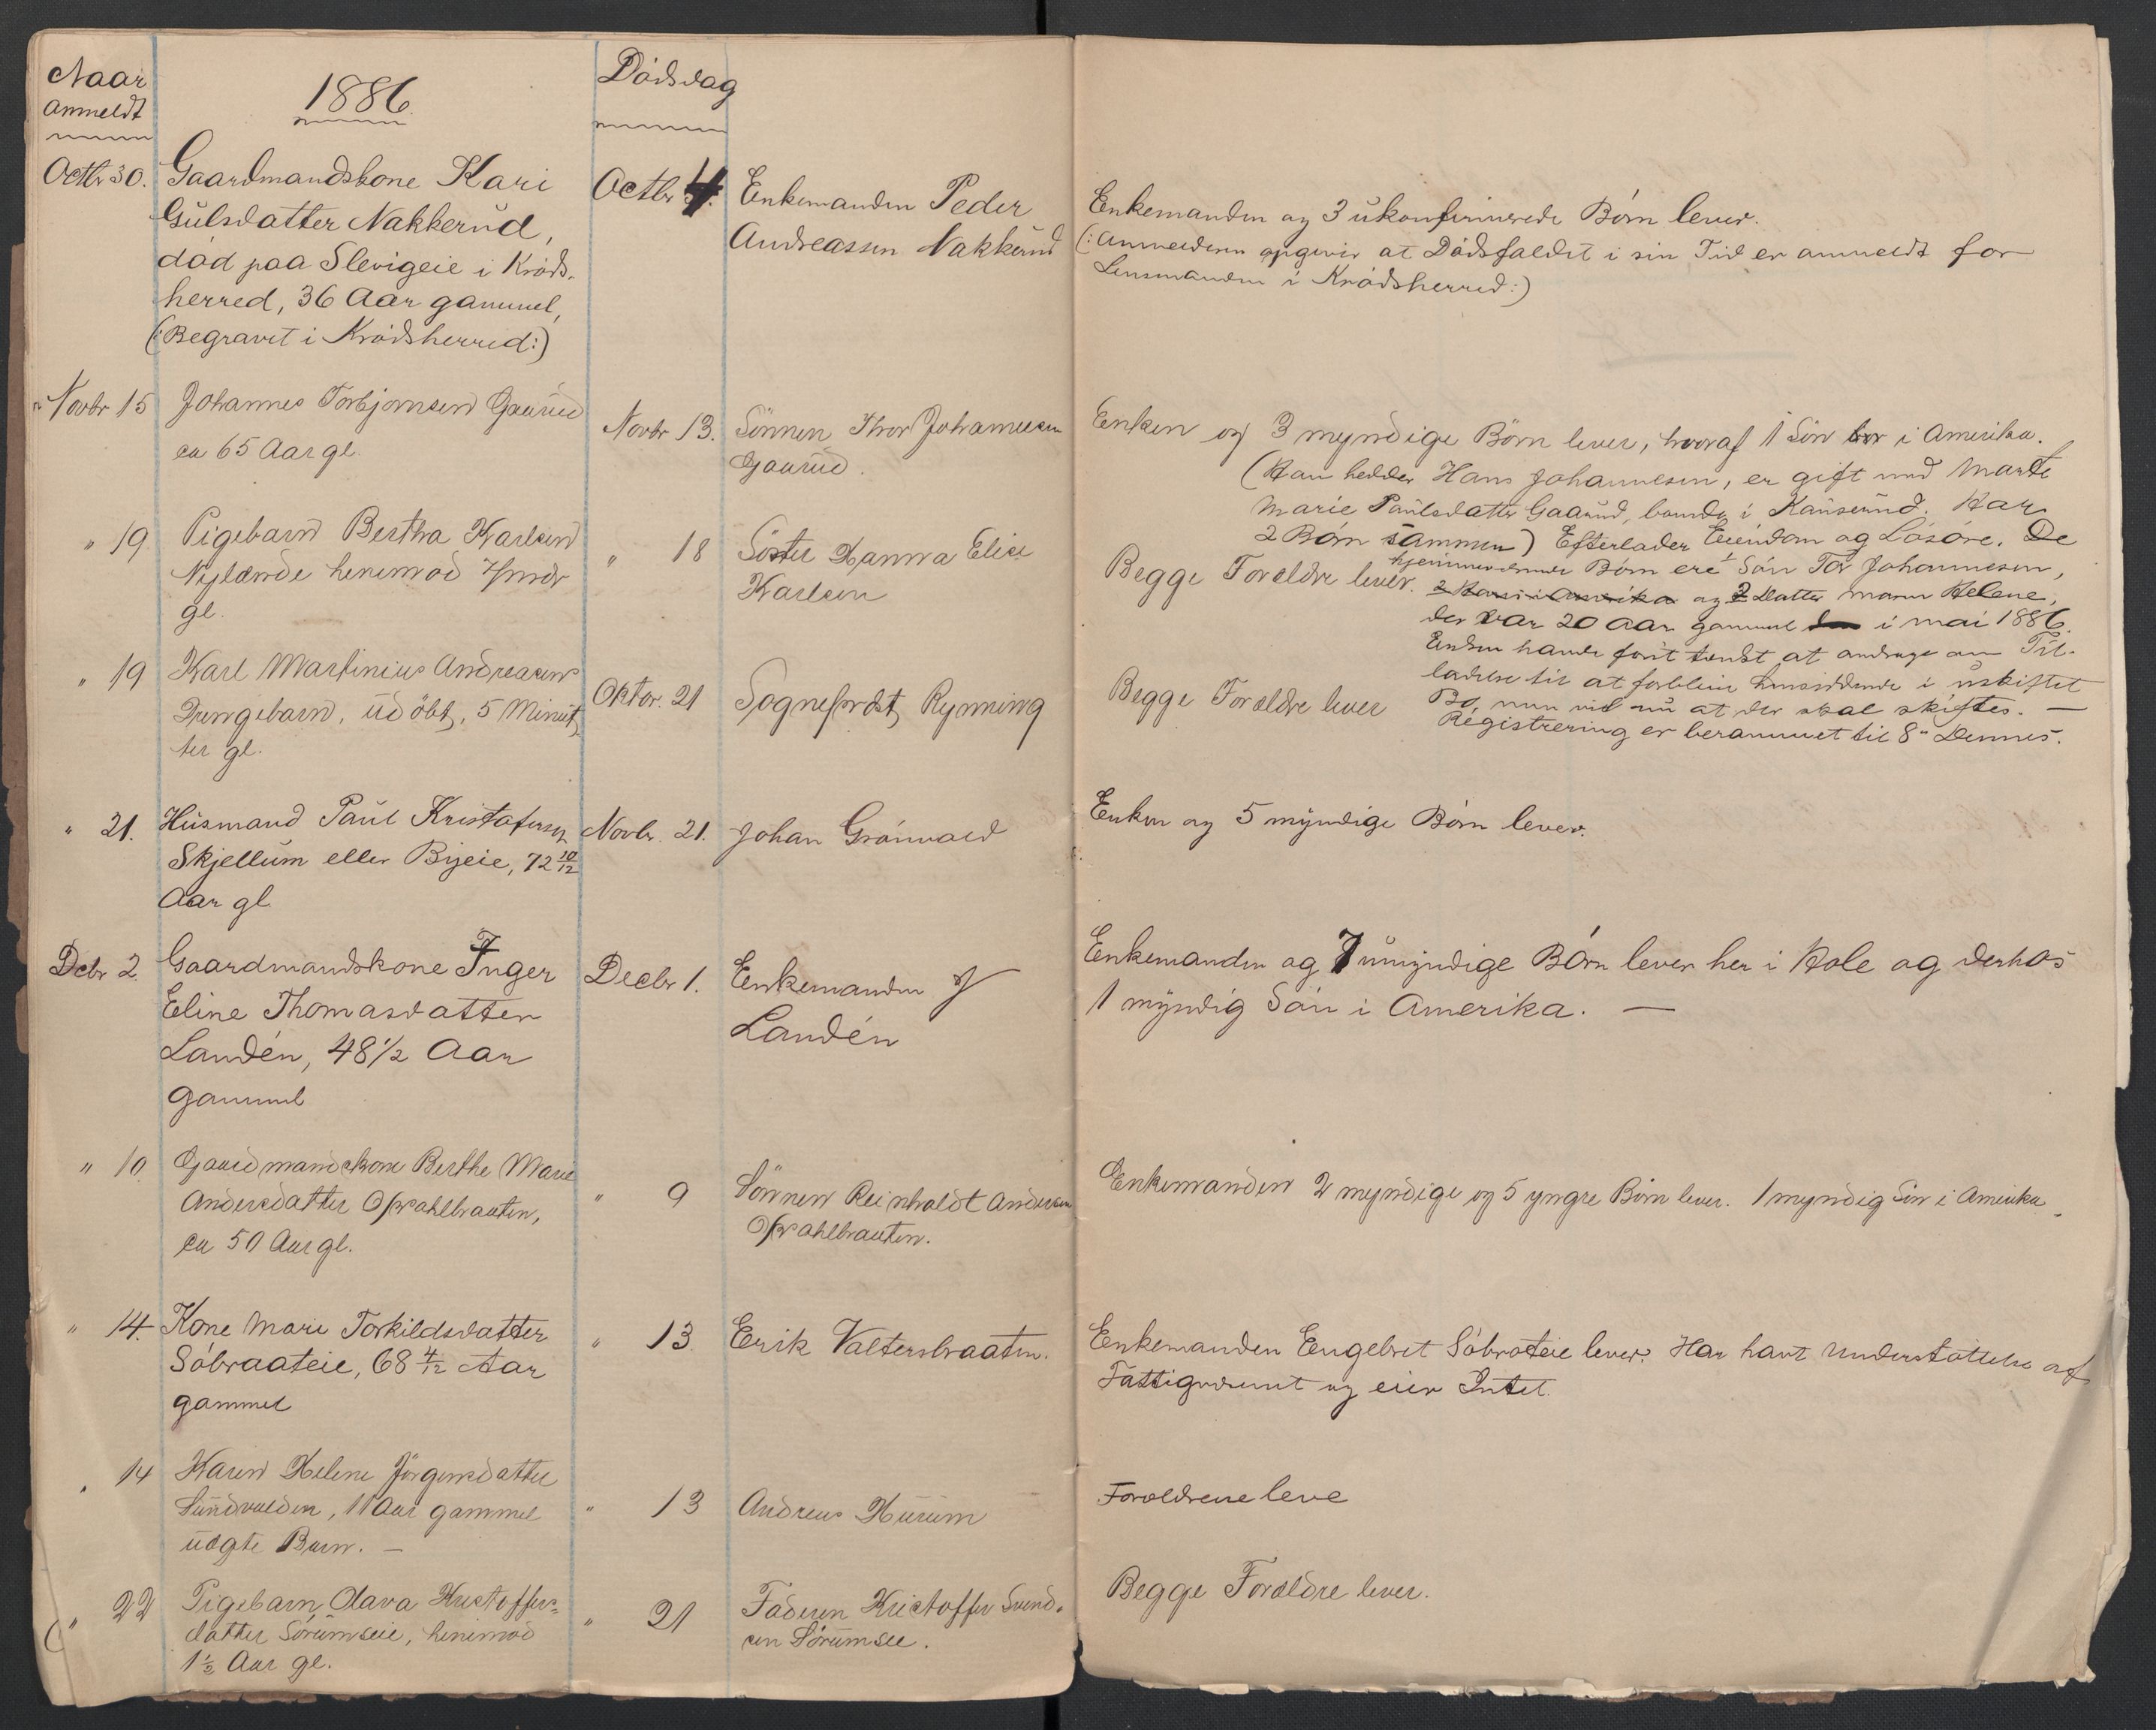 Naar
anmeldt
1886
Dødsdag
Octbr 30.
Gaardmandskone Kari
Gulsdatter Nakkerud,
død paa Slevigeie i Kröds-
herred, 36 Aar gammel,
(: Begravet i Krödsherred:)
Octbr 4
Enkemanden Peder
Andreassen Nakkerud
Enkemanden og 3 ukonfirmerede Børn lever.
(: Anmelderen opgiver at Dødsfaldet i sin Tid er anmeldt for
Lensmanden i Krödsherred:)
Novbr 15
Johannes Torbjørnsen Gaarud
ca 65 Aar gl.
Novbr 13.
Sönnen Thor Johannesen
Gaarud.
Enken og 3 myndige Börn lever, hvoraf 1 Sön bor i Amerika.
(Han hedder Hans Johannesen, er gift med Marte
Marie Paulsdatter Gaarud, boende i Har
2 Børn sammen) Efterlader Eiendom og Løsøre. De
hjemmeværende Børn ere 1 Søn Tor Johannesen,
og 2 Datter Maren Helene,
der var 20 Aar gammel i Mai 1886.
Enken havde först tænkt at andrage om Til-
ladelse til at forblive hensiddende i uskiftet
Bo, men vil nu at der skal skiftes. —
Registrering er berammet til 8de Dennes.
" 19
Pigebarn Bertha Karlsen
Nylænde henimod 7 mdr
gl.
" 18
Söster Hanna Elise
Karlsen
Begge Forældre lever.
" 19
Karl Martinius Andreasens
Drengebarn, udöbt, 5 Minut-
ter gl.
Oktbr. 21
Sogneprdst Rynning
Begge Forældre lever
" 21.
Husmand Paul Kristofersen
Skjellum eller Bijeie, 72 10/12
Aar gl.
Novbr. 21.
Johan Grönvold
Enken og 5 myndige Børn lever.
Debr 2
Gaardmandskone Inger
Eline Thomasdatter
Landén, 48 1/2 Aar
gammel
Decbr 1.
Enkemanden
Landén
Enkemanden og 7 umyndige Børn lever her i Hole og derhos
1 myndig Søn i Amerika. —
" 10
Gaardmandskone Berthe Marie
Andersdatter Opsahlbraaten,
ca 50 Aar gl.
" 9
Sönnen Reinholdt Andersen
Opsahlbraaten.
Enkemanden 2 myndige og 5 yngre Börn lever. 1 myndig Sön i Amerika.
" 14.
Kone Mari Torkildsdatter
Søbraateie, 68 4/12 Aar
gammel
" 13
Erik Valtersbraaten.
Enkemanden Engebret Søbroteie lever. Har havt Understøttelse af
Fattigvæsenet og eier Intet.
" 14
Karen Helene Jörgensdatter
Sundvolden, 11 Aar gammel
uægte Barn. —
" 13
Andreas Hurum
Forældrene leve
" 22
Pigebarn Olava Kristoffers-
datter Sörumseie, henimod
1 1/2 Aar gl.
" 21
Faderen Kristoffer Svend-
sen Sörumseie.
Begge Forældre lever.